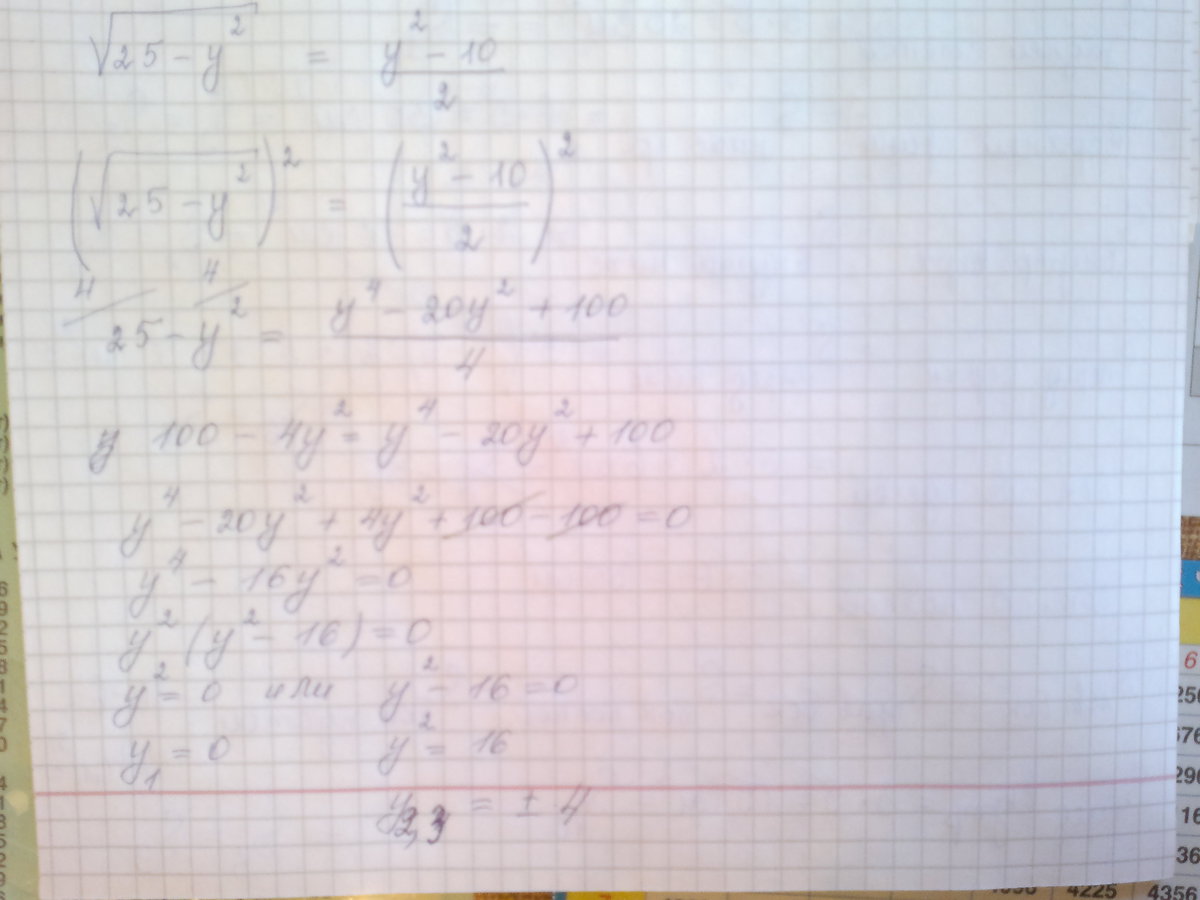 √25 - y² = (y² - 10)/2
(√25 - y²)² = ((y² - 10)/2)²
4 4
25 - y² = (y⁴ - 20y² + 100)/4
y 100 - 4y² = y⁴ - 20y² + 100
y⁴ - 20y² + 4y² + 100 - 100 = 0
y⁴ - 16y² = 0
y² (y² - 16) = 0
y² = 0 или y² - 16 = 0
y₁ = 0 y² = 16
y₂,₃ = ± 4
6
16
36
4225 4356